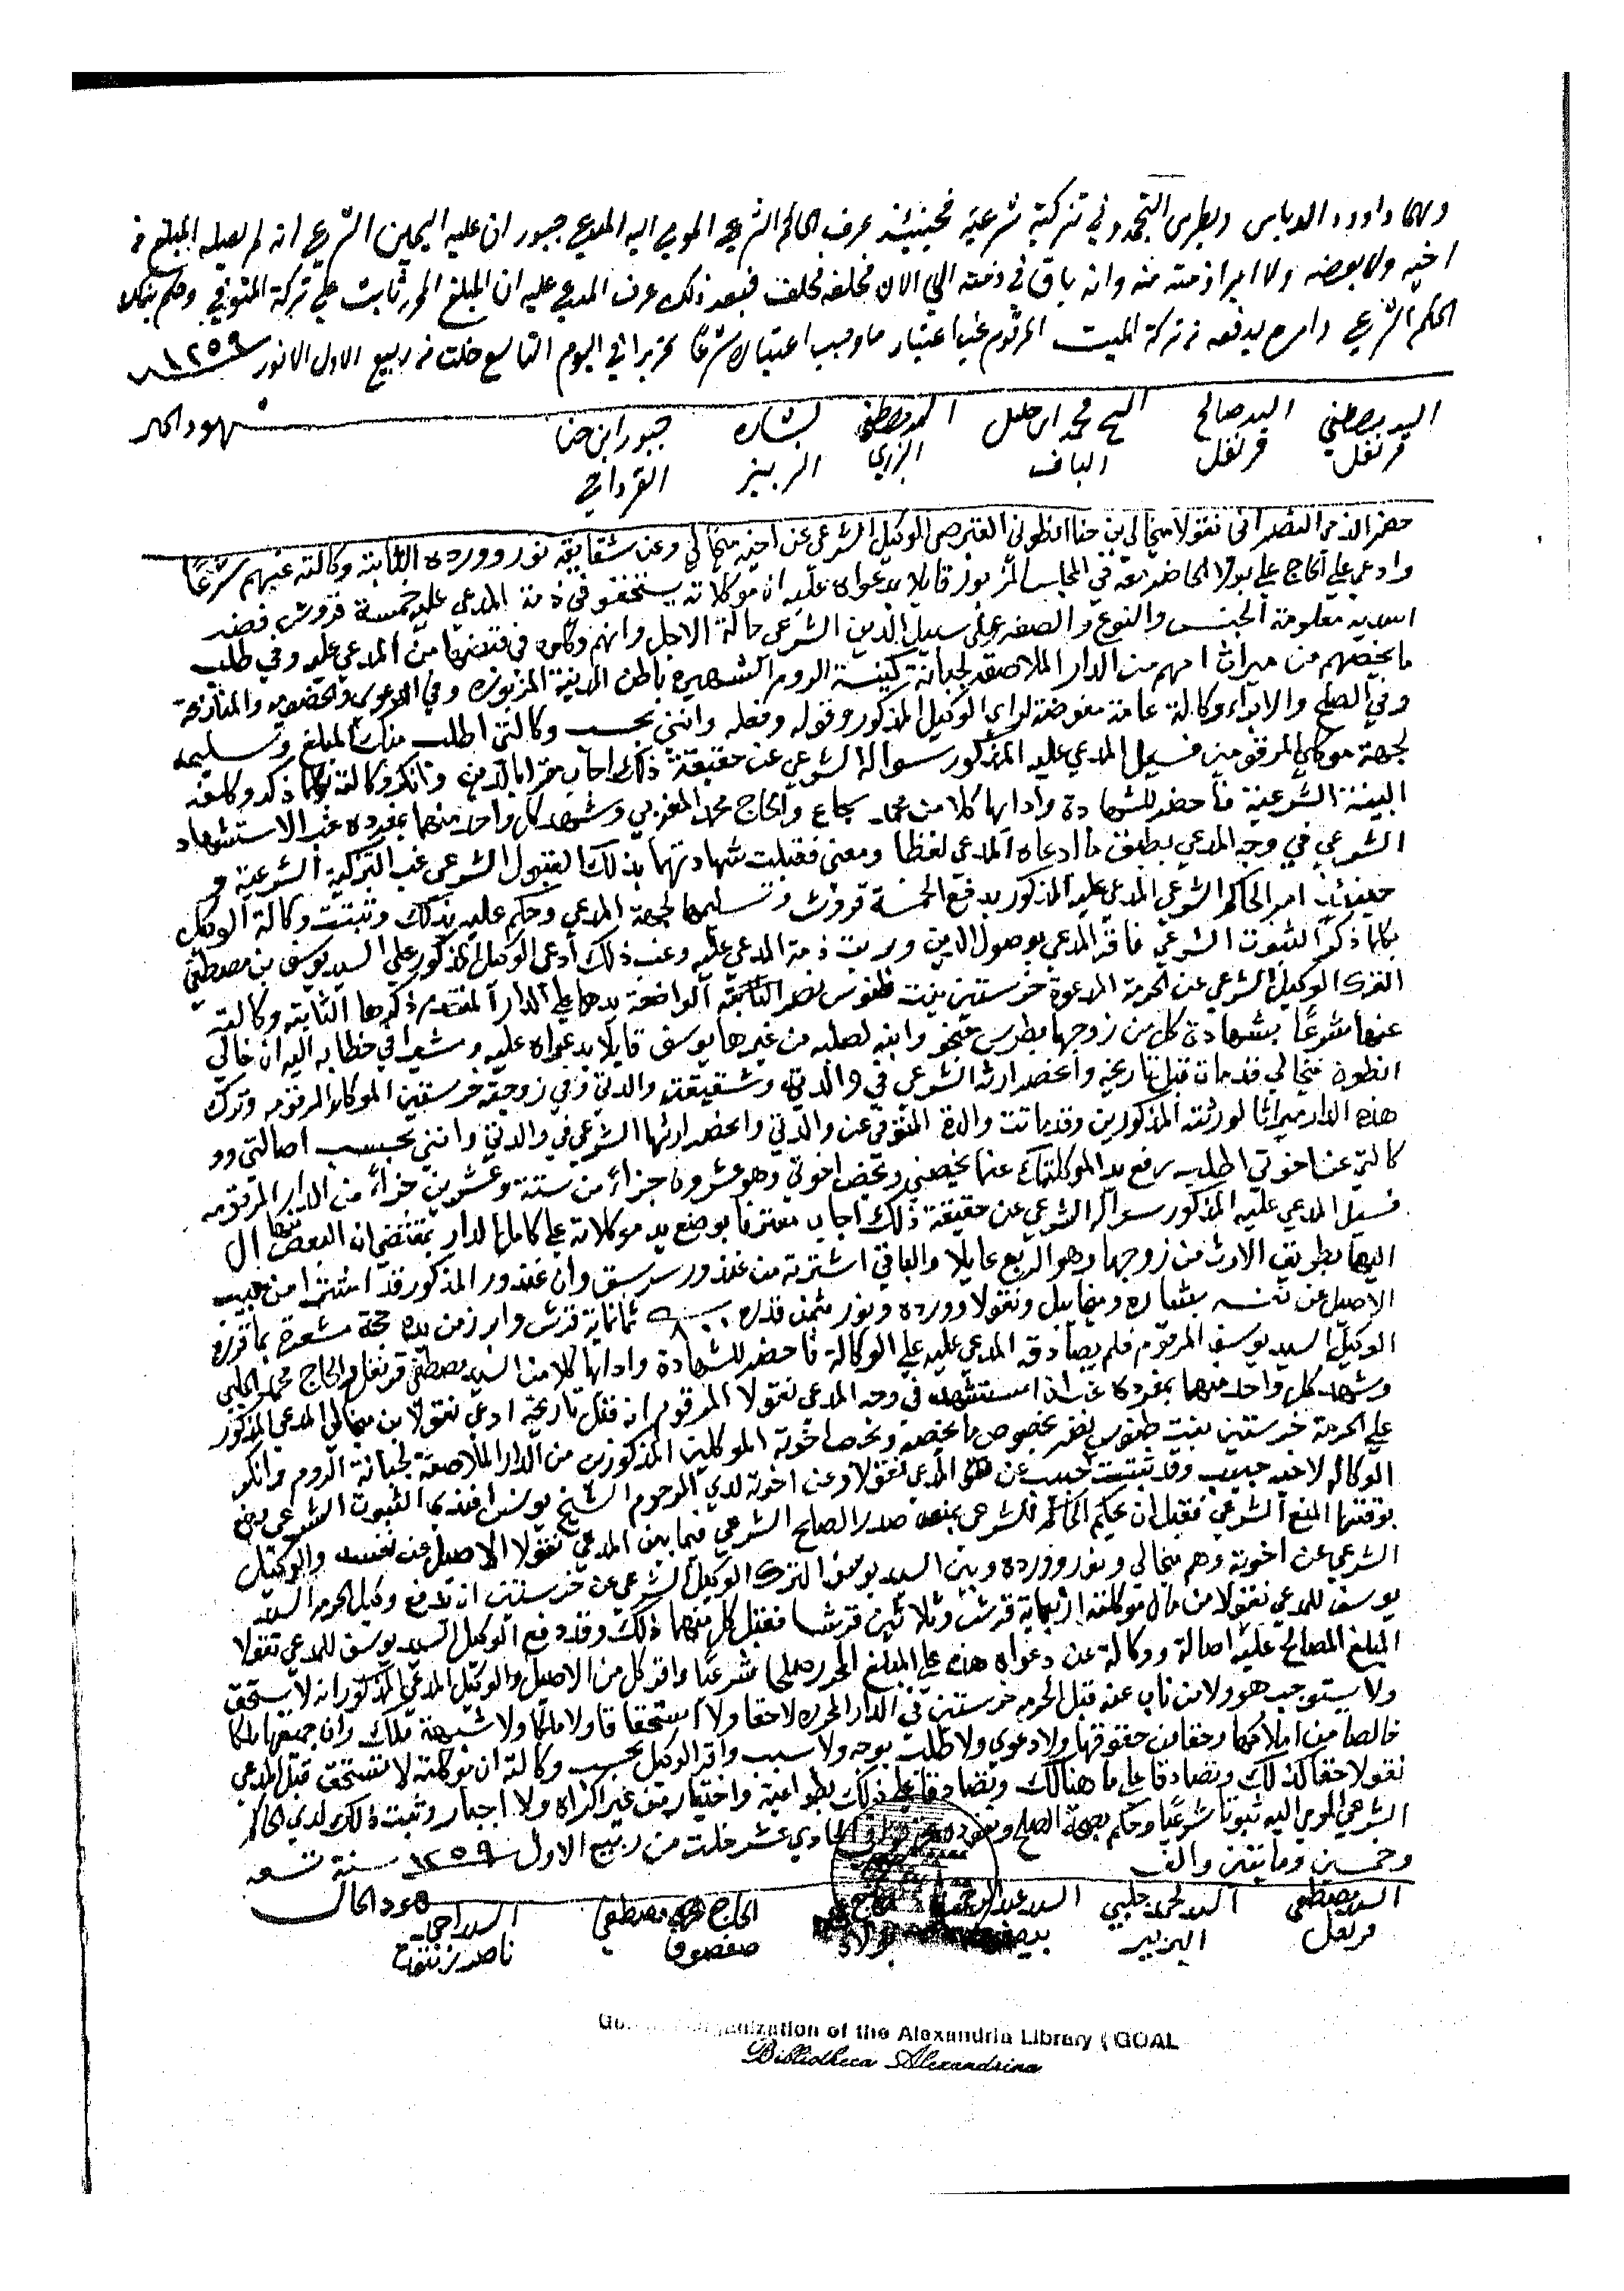 وهما داوود الدباس وبطرس التجمدوني تزكية شرعية فحينئذ عرف الحاكم الشرعي المومي اليه المدعي جبور ان عليه اليمين الشرعي انه لم يصله المبلغ من
اخيه ولا بعضه ولا ابرا ذمته منه وانه باق في ذمته الي الان فحلفه فحلف فبعد ذلك عرف المدعي عليه ان المبلغ المحرر ثابت علي تركة المتوفي وحكم بذلك
الحكم الشرعي وامره بدفعه من تركة الميت المرقوم غب اعتبار ما وجب اعتباره شرعًا تحريرا في اليوم التاسع خلت من ربيع الاول الانور سنة ١٢٥٩
السيد مصطفي قرنفل
السيد صالح قرنفل
الشيخ محمد ابن خليل الباف
بشاره الربيز
جبور ابن حنا القرداحي
شهود الحال
حضر الذمي النصراني نقولا ميخالي بن حنا انطوني القبرصي الوكيل الشرعي عن اخيه ميخالي وعن شقايقه نور وورده الثابتة وكالته عنهم شرعًا
وادعي علي الحاج علي بولاد الحاضر معه في المجلس المزبور قايلا بدعواه عليه ان موكلاته يستحقو في ذمة المدعي عليه خمسة قروش فضه
اسديه معلومة الجنس والنوع والصفه علي سبيل الدين الشرعي حالة الاجل وانهم وكلوه في قبضها من المدعي عليه وفي طلب
ما يخصهم من ميراث امهم من الدار الملاصقه لجبانة كنيسة الروم الشهيره باطن المدينة المزبوره وفي الدعوي والخصومه والمنازعة
وفي الصلح والابراء وكالة عامة مفوضة لراي الوكيل المذكور وقوله وفعله وانني بحسب وكالتي اطلب منك المبلغ وتسليمه
لجهة موكلي المرقومين فسيل المدعي عليه المذكور سواله الشرعي عن حقيقة ذلك اجاب مقرا بالدين وانكر وكالته بكلما ذكر وكلفه
البينة الشرعية فاحضر للشهادة وادايها كلا من محمد سجاع والحاج محمد المغربي وشهد كل واحد منهما بمفرده غب الاستشهاد
الشرعي في وجه المدعي بطبق ما ادعاه المدعي لفظا ومعني فقبلت شهادتهما بذلك القبول الشرعي غب التزكية الشرعية و
حينئذ امر الحاكم الشرعي المدعي عليه المذكور بدفع الخمسة قروش وتسليمها لجهة المدعي وحكم عليه بذلك وتثبتت وكالة الوكيل
بكلما ذكر الثبوت الشرعي فاقر المدعي بوصول الدين وبريت ذمة المدعي عليه وغب ذلك ادعي الوكيل المذكور علي السيد يوسف بن مصطفي
الترك الوكيل الشرعي عن الحرمة المدعوة خرستين بنت طنوس نصر الواضعة يدها علي الدار المتقدم ذكرها الثابته وكالته
عنها شرعًا بشهادة كل من زوجها بطرس وابنه لصلبه من غيرها يوسف قايلا بدعواه عليه ومشيرا في خطابه اليه ان خالي
انطون ميخالي قد مات قبل تاريخه وانحصر ارثه الشرعي في والدته وشقيقته والدتي وفي زوجته خرستين الموكله المرقومه وترك
هذه الدار ميراثا لورثته المذكورين وقد ماتت والدة المتوفي عن والدتي وانحصر ارثها الشرعي في والدتي وانني بحسب اصالتي وو
كالتي عن اخوتي اطلب رفع يد الموكلتك عنما يخصني ويخص اخوتي وهو عشرون جزاء من ستة وعشرين جزاء من الدار المرقومه
فسيل المدعي عليه المذكور سواله الشرعي عن حقيقة ذلك اجاب معترفا بوضع يد موكلاته علي كامل الدار بمقتضي ان البعض منها ال
اليها بطريق الارث من زوجها وهو الربع عايلا والباقي اشترته من غندور سرسق وان غندور المذكور قد اشترا من حبيب
الاصيل عن نفسه بشاره وميخاييل ونقولا وورده ونور بثمن قدره ٨٠٠ ثمانماية قرش وابرز من يده حجة مشعرة بما قرره
الوكيل السيد يوسف المرقوم فلم يصادقه المدعي عليه علي الوكالة فاحضر للشهادة وادايها كلا من السيد مصطفي قرنفل والحاج محمد الحلبي
وشهد كل واحد منهما بمفرده غب ان استشهد في وجه المدعي نقولا المرقوم انه قبل تاريخه ادعي نقولا بن ميخالي المدعي المذكور
علي الحرمة خرستين بنت طنوس نصر بخصوص ما يخصه ويخص اخوته الموكلين المذكورين من الدار الملاصقة لجبانة الروم وانكر
الوكاله لاخيه حبيب وقد تثبتت حبيب عن المدعي نقولا وعن اخوته لدي المرحوم الشيخ يوسف افندي الثبوت الشرعي ومنع
بوقتها المنع الشرعي فقبل ان يحكم الحاكم الشرعي بمنعه صدر الصلح الشرعي فيما بين المدعي نقولا الاصيل عن نفسه والوكيل
الشرعي عن اخوته وهم ميخالي ونور ووردة وبين السيد يوسف الترك الوكيل الشرعي عن خرستين ان يدفع وكيل الحرمه السيد
يوسف للمدعي نقولا من مال موكلته اربعماية قرش وثلاثين قرشا فقبل كل منهما ذلك وقد دفع الوكيل السيد يوسف للمدعي نقولا
المبلغ المصالح عليه اصالة ووكالة عن دعواه هذه علي المبلغ المحرر صلحا شرعيًا واقر كل من الاصيل والوكيل المدعي المذكور انه لا يستحق
ولا يستوجب هو ولا من ناب عنه قبل الحرمه خرستين في الدار المحرره لا حقا ولا استحقاقا ولا ملكا ولا شبهة ملك وان جميعها ملكا
خالصا من املاكها وحقا من حقوقها ولا دعوي ولا طلب بوجه ولا سبب واقر الوكيل بحسب وكالته ان موكلته لا تستحق قبل المدعي
نقولا حقا كذلك وتصادقا علي ما هنالك وتصادقا علي ذلك بطواعية واختيار من غير اكراه ولا اجبار وثبت ذلك لدي الحاكم
الشرعي المومي اليه ثبوتا شرعيًا وحكم بصحة الصلح ونفوذه في الحادي عشر خلت من ربيع الاول ١٢٥٩ سنة تسعه
وخمسين ومايتين والف
السيد مصطفي قرنفل
السيد محمد جلبي البربير
الحاج مصطفي صفصوف
السيد راجي ناصر
شهود الحال
Organization of the Alexandria Library (GOAL
Bibliotheca Alexandrina